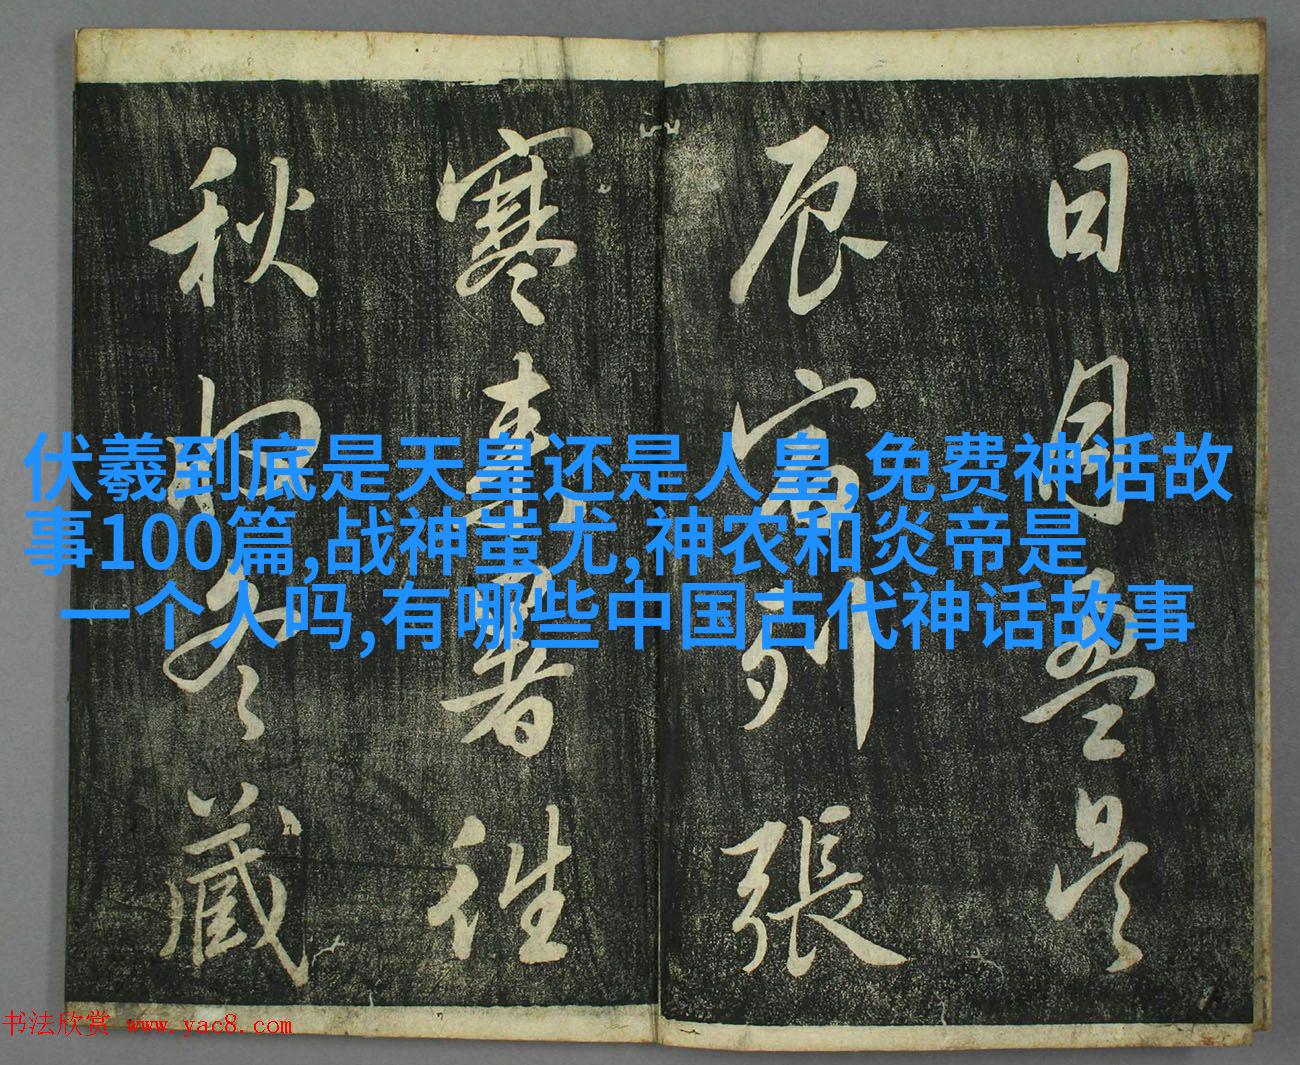 日月盈昃
辰宿列張
寒来暑往
秋收冬藏
伏羲到底是天皇还是人皇,免费神话故
事100篇,战神蚩尤,神农和炎帝是
一个人吗,有哪些中国古代神话故事
书法欣赏 www.yac8.com